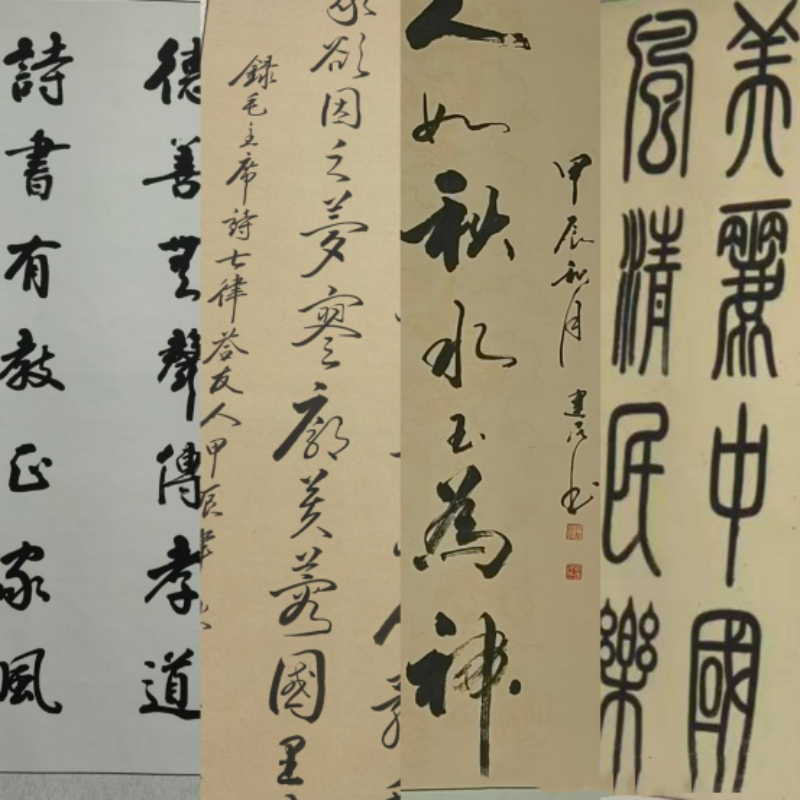 德善無聲傳孝道
詩書有教正家風
欲因之夢寥廓芙蓉國里
録毛主席詩七律答友人甲辰
人如秋水玉為神
甲辰秋月
美麗中國
風清民樂